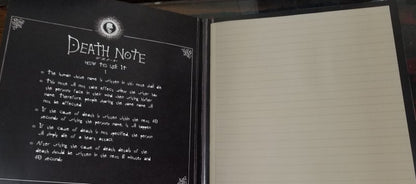 DEATH NOTE
HOW TO USE IT
I
o The human whose name is written in this note shall die
o This note will not take effect unless the writer has
the person's face in their mind when writing his/her
name. Therefore, people sharing the same name will
not be affected
o If the cause of death is written within the next 40
seconds of writing the person's name, it will happen
o If the cause of death is not specified, the person
will simply die of a heart attack
o After writing the cause of death, details of the
death should be written in the next 6 minutes and
40 seconds